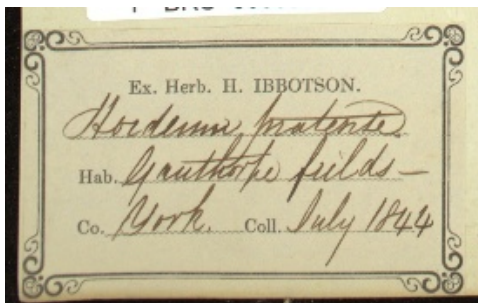 Ex. Herb. H. IBBOTSON.
Hordeum pratense
Hab. Ganthorpe fields—
Co. York. Coll. July 1844